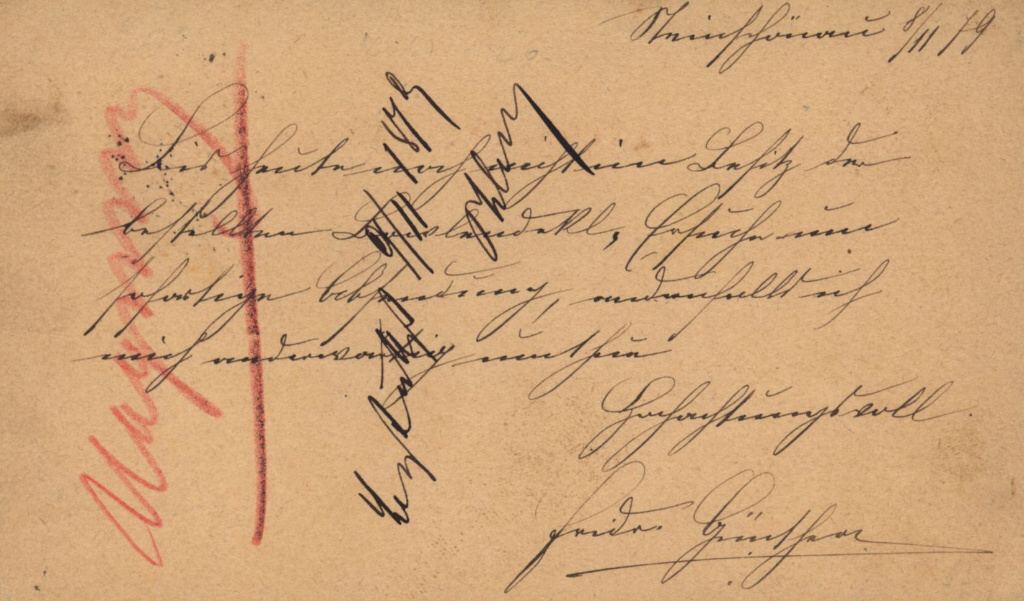 Steinschönau 8/11 79
Bis heute noch nicht im Besitz der
bestellten Bowlendekl, Ersuche um
sofortige Absendung, andernfalls ich
mich anderwärtig umthue
Hochachtungsvoll
Friedr. Günther
9/11 1879